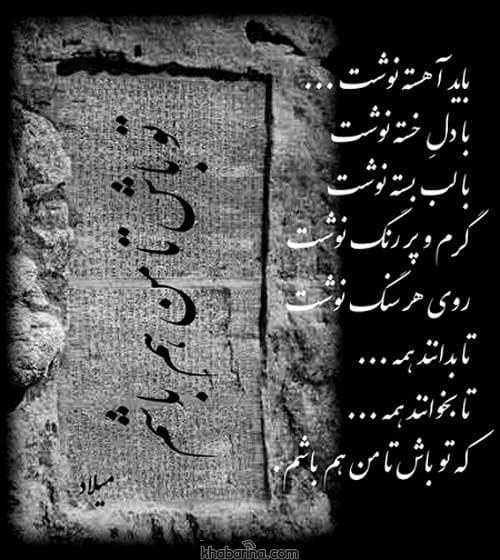 باید آهسته نوشت ...
با دلِ خسته نوشت
با لب بسته نوشت
گرم و پر رنگ نوشت
روی هر سنگ نوشت
تا بدانند همه ...
تا بخوانند همه ...
که تو باش تا من هم باشم.
تو باش تا من هم باشم
میلاد
khabarina.com